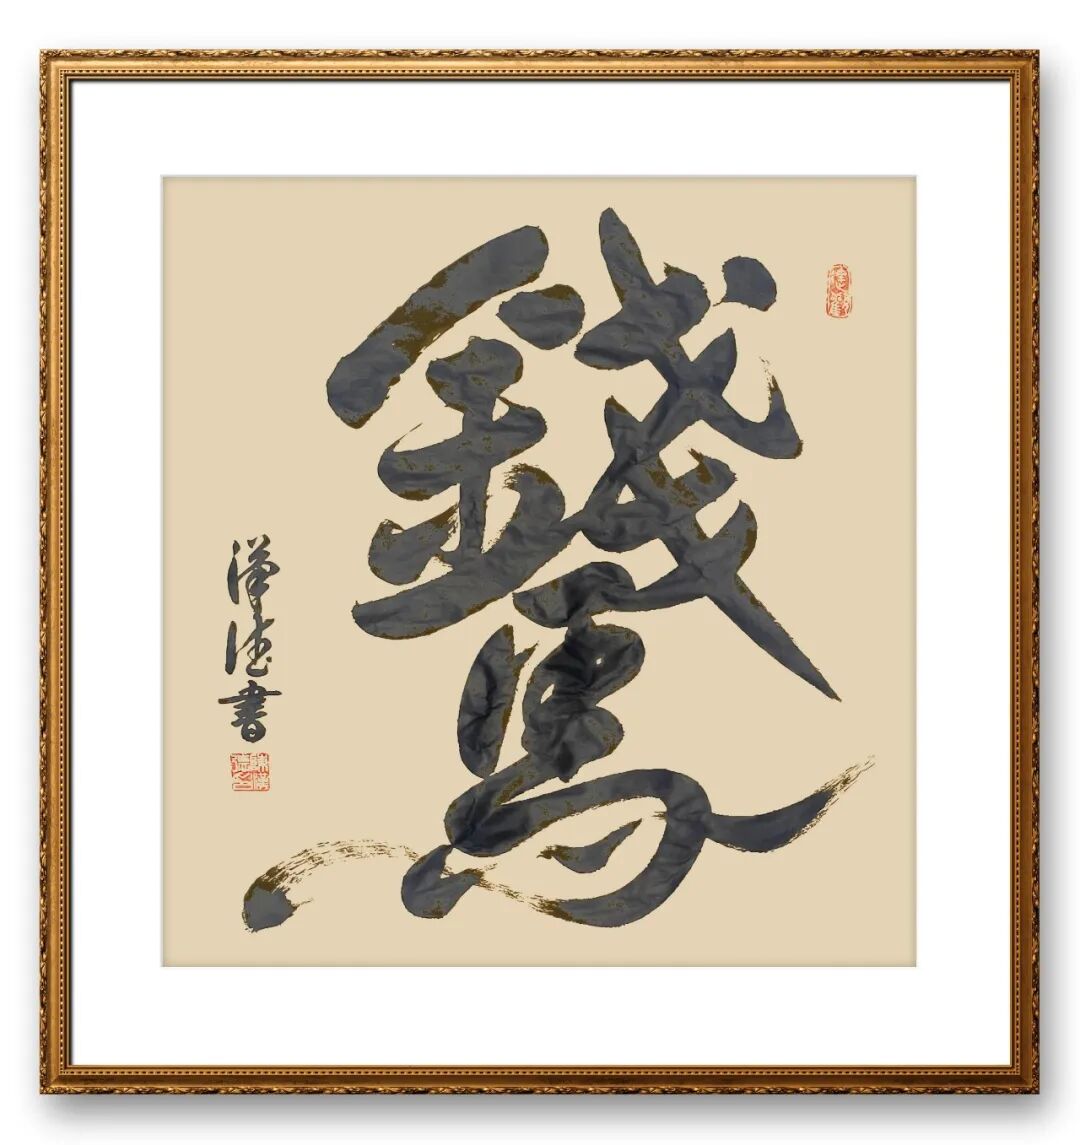 錢馬
漢德書